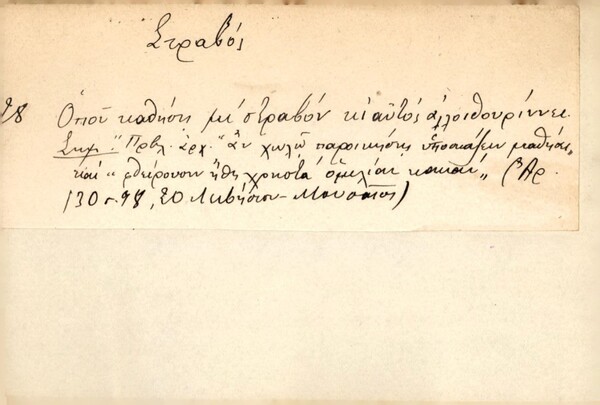 Στραβός
98 Οπού καθήση με στραβόν κι αυτός αλλοιθουρίννει.
Σημ. "Πρβλ. αρχ. "Ἂν χωλῷ παροικήσῃς ὑποσκάζειν μαθήσῃ"
καὶ "φθείρουσιν ἤθη χρηστὰ ὁμιλίαι κακαί" (Ἀρ.
130 σ. 98, 20 Λιβήσιον - Μουσαῖος)